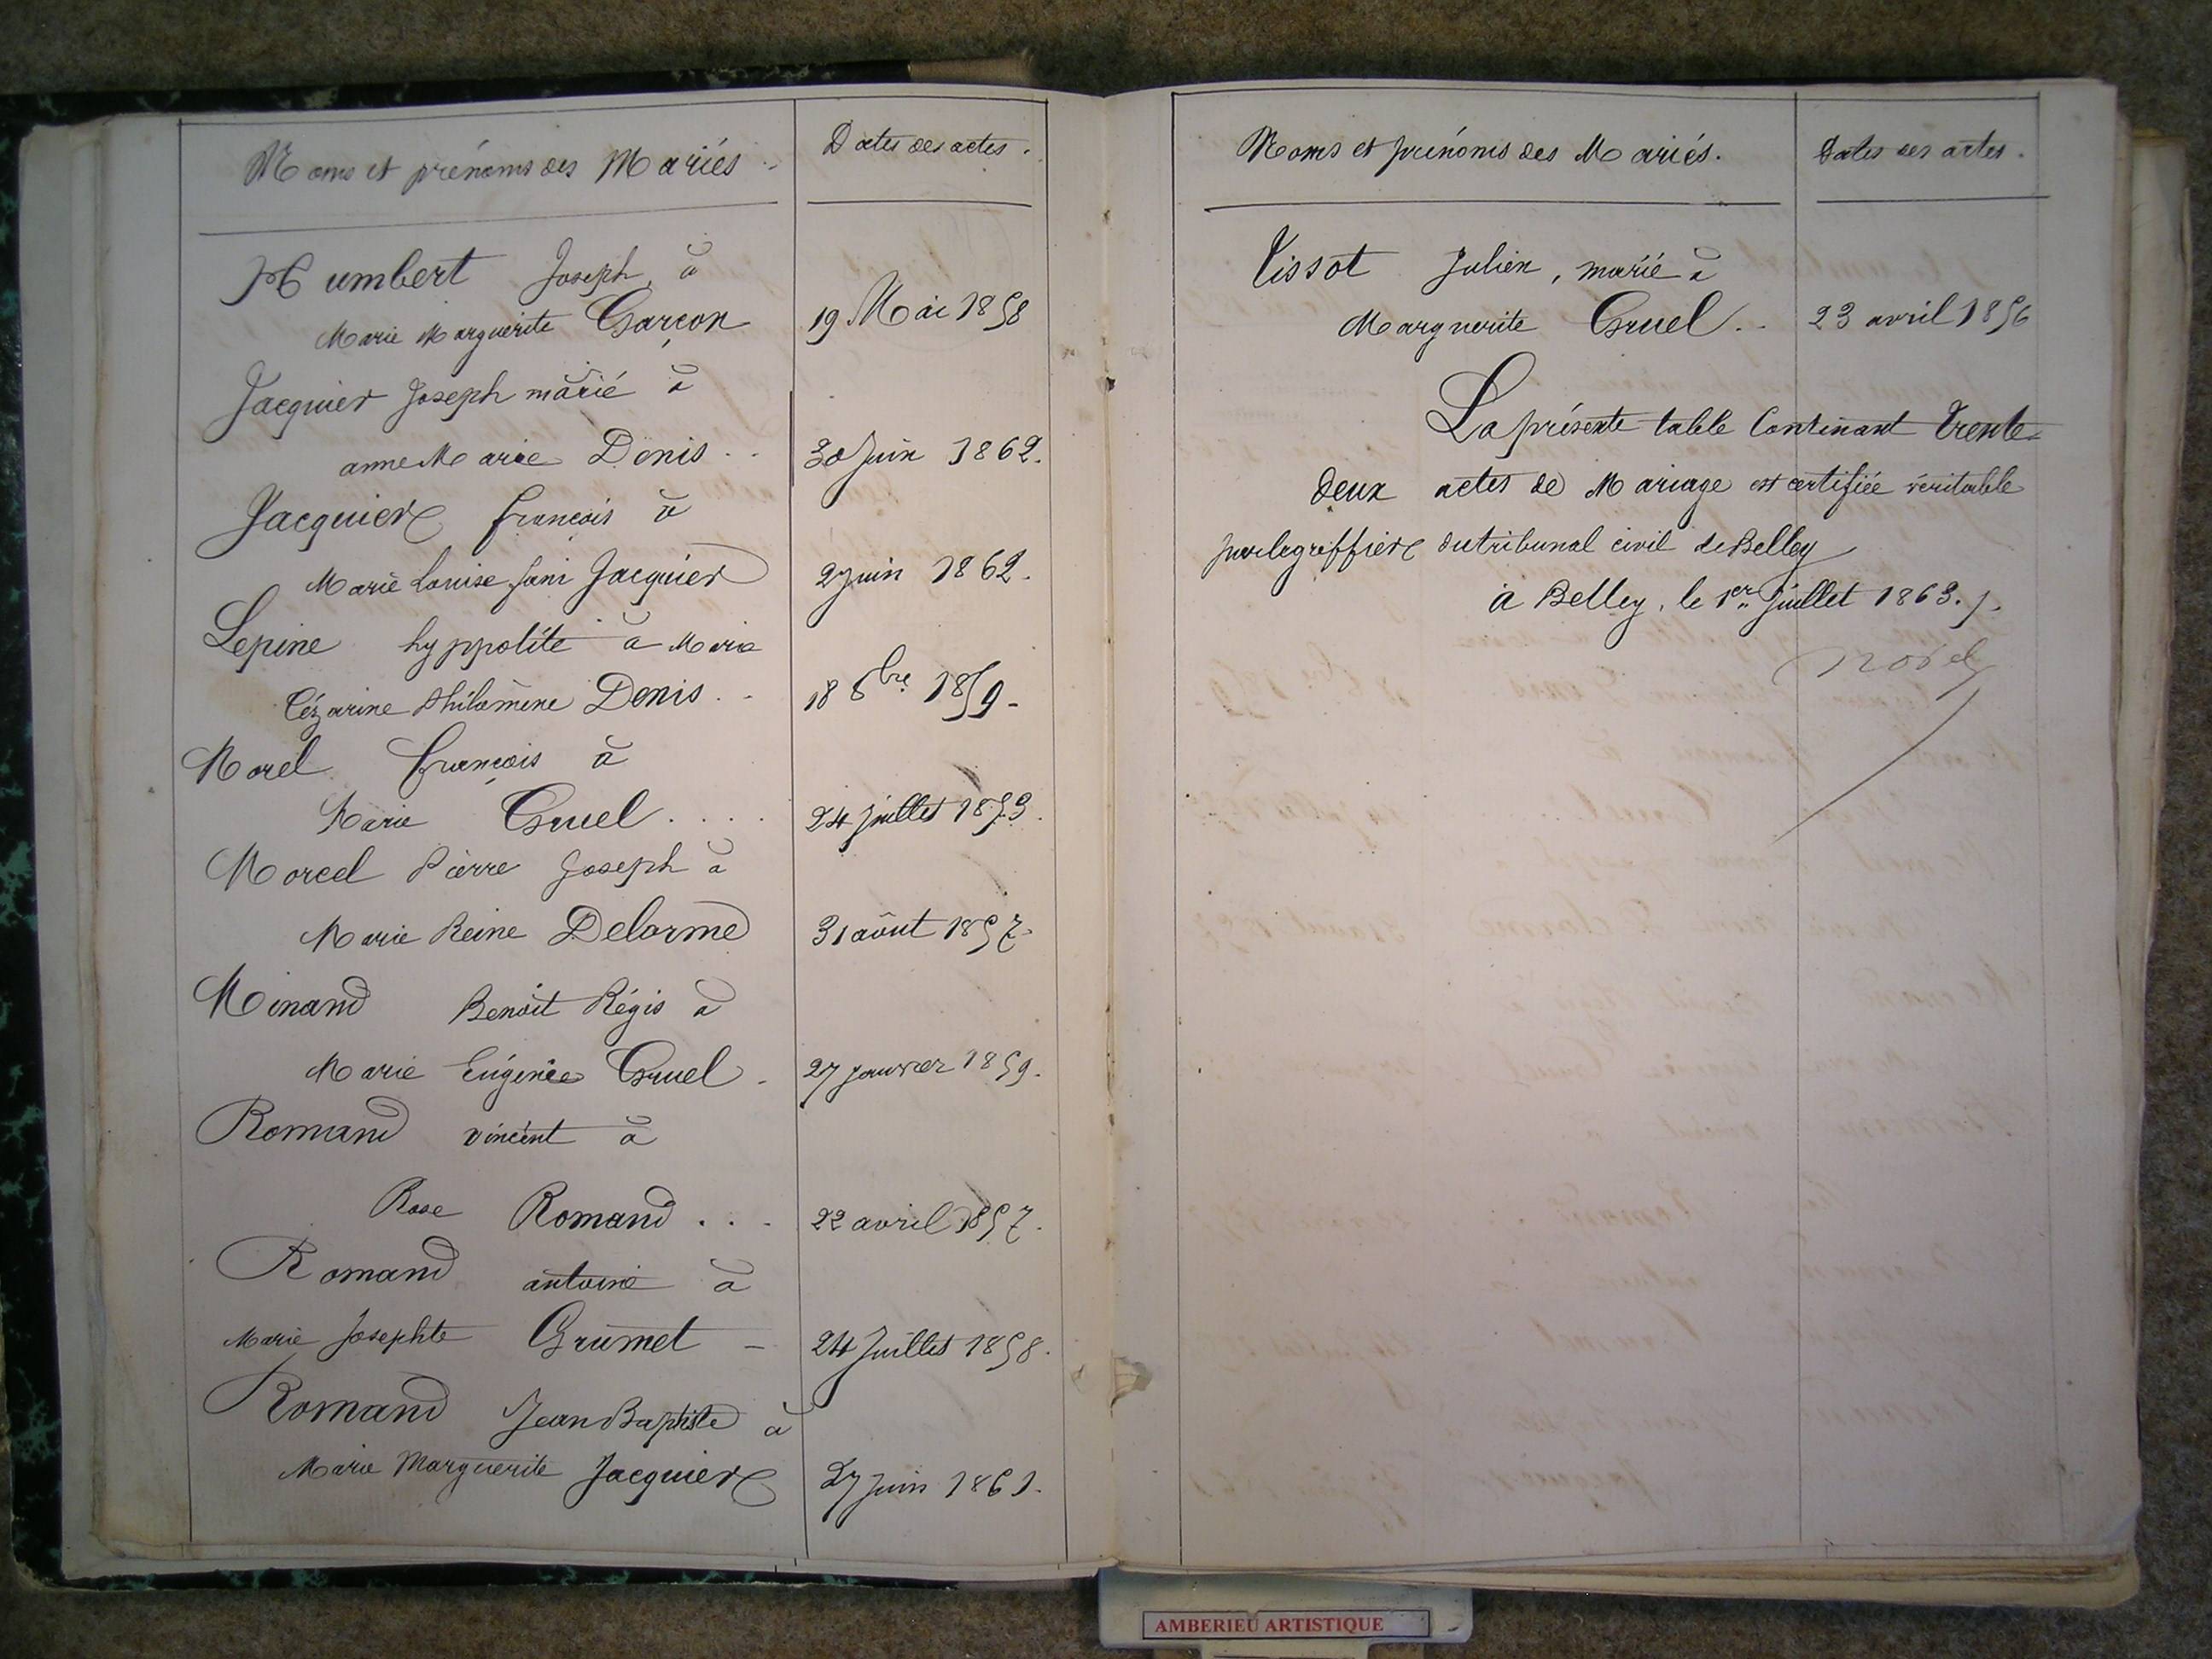 Noms et prénoms des Mariés
Dates des actes.
Humbert Joseph, à
Marie Marguerite Garçon
19 Mai 1858
Jacquier Joseph marié à
anne Marie Denis . .
30 Juin 1862.
Jacquier François à
Marie Louise Fani Jacquier
2 Juin 1862.
Lepine hyppolite à Marie
Cézarine Philomène Denis . .
18 8bre 1859 -
Morel François à
Marie Gruel . . . .
24 Juillet 1853.
Morcel Pierre Joseph à
Marie Reine Delorme
31 aôut 1857.
Minand Benoit Régis à
Marie Eugénie Gruel -
27 janvier 1859.
Romand vincent à
Rose Romand . . .
22 avril 1857.
Romand antoine à
Marie Josephte Grumet -
24 Juillet 1858.
Romand Jean Baptiste à
Marie Marguerite Jacquier
27 Juin 1861.
Noms et prénoms des Mariés.
Dates des actes.
Tissot Julien, marié à
Marguerite Gruel . .
23 avril 1856
La présente table Contenant trente
deux actes de Mariage est certifiée véritable
par le greffier du tribunal civil de Belley
à Belley, le 1er Juillet 1863. /.
AMBERIEU ARTISTIQUE